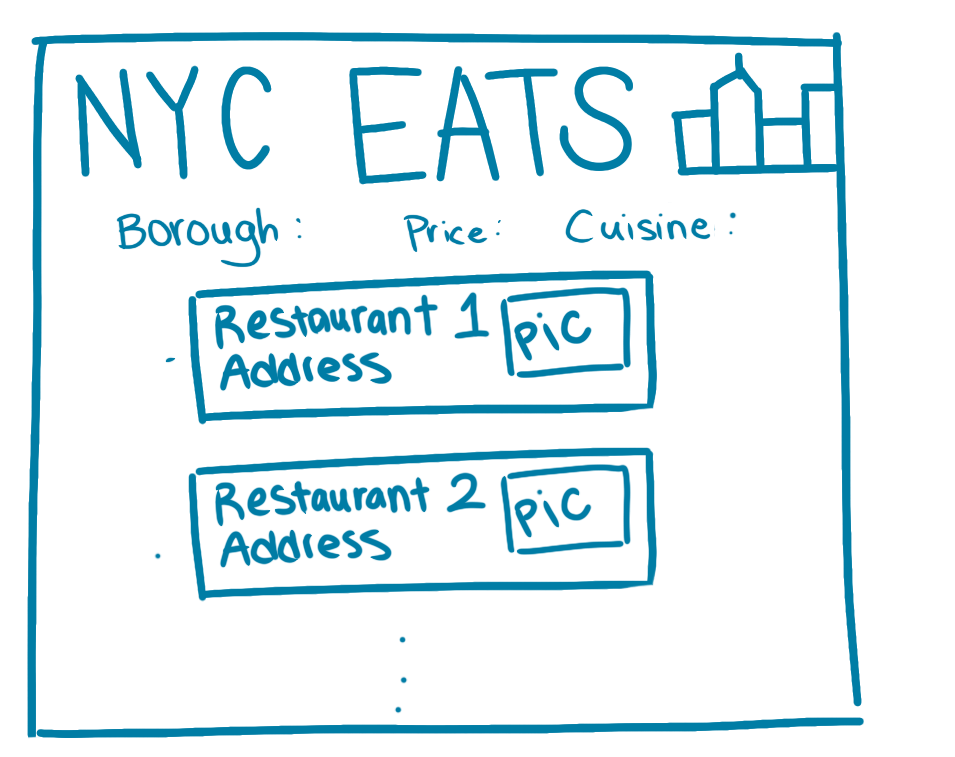 NYC EATS
Borough: Price: Cuisine:
Restaurant 1 pic
Address
Restaurant 2 pic
Address